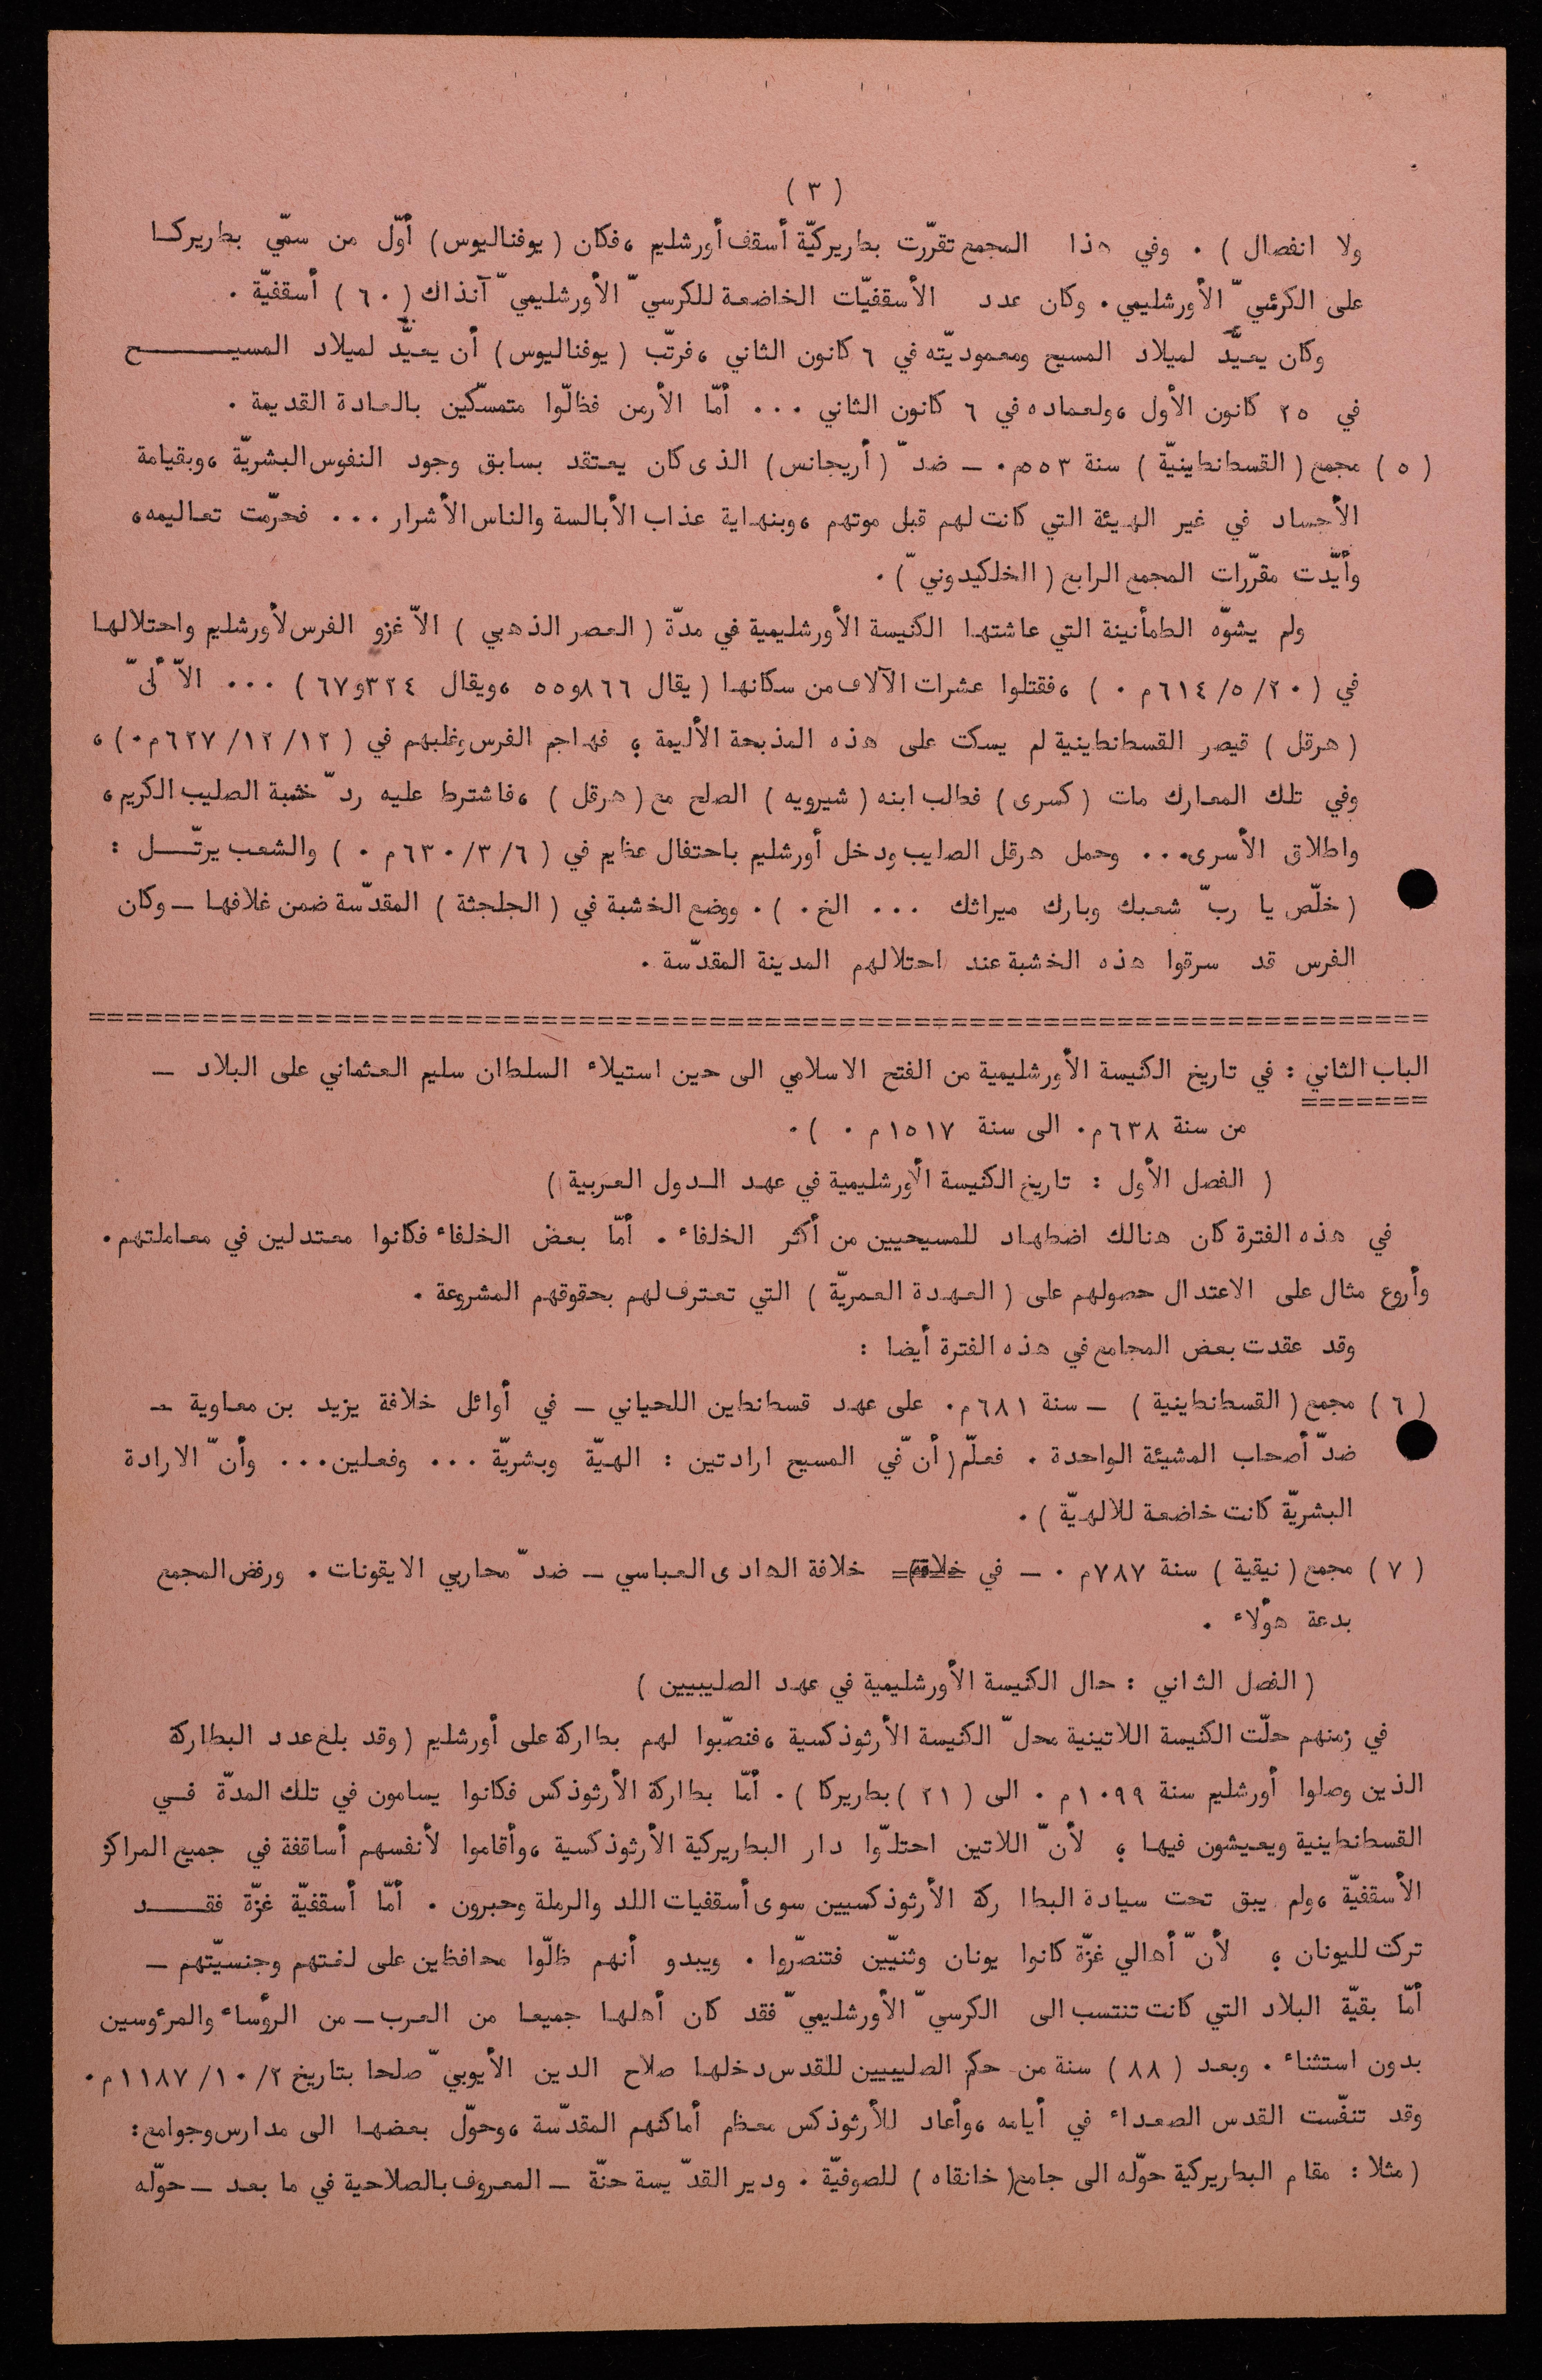 ( ٣ )
ولا انفصال ) ٠ وفي هذا المجمع تقرّرت بطاريركيّة أسقف أورشليم ، فكان ( يوفناليوس ) أوّل من سمّي بطاريركـا
على الكرسّي الأورشليمي ٠ وكان عدد الأسقفيّات الخاضعة للكرسيّ الأورشليميّ آنذاك ( ٦٠ ) أسقفيّة ٠
وكان يعيّد لميلاد المسيح ومعموديّته في ٦ كانون الثاني ، فرتّب ( يوفناليوس ) أن يعيّد لميلاد المسيـــــح
في ٢٥ كانون الأول ، ولعماده في ٦ كانون الثاني ٠٠٠ أمّا الأرمن فظالّوا متمسكّين بالعادة القديمة ٠
( ٥ ) مجمع ( القسطنطينيّة ) سنة ٥٥٣م ٠ ــ ضدّ ( أريجانس ) الذى كان يعتقد بسابق وجود النفوس البشريّة ، وبقيامة
الأجساد في غير الهيئة التي كانت لهم قبل موتهم ، وبنهاية عذاب الأبالسة والناس الأشرار ٠٠٠ فحرّمت تعاليمه ،
وأيّدت مقرّرات المجمع الرابع ( الخلكيدونيّ ) ٠
ولم يشوّه الطمأنينة التي عاشتها الكنيسة الأورشليمية في مدّة ( العصر الذهبي ) الاّ غزو الفرس لأورشليم واحتلالها
في ( ٢٠/ ٥/ ٦١٤م ٠ ) ، فقتلوا عشرات الآلاف من سكانها ( يقال ٨٦٦و٥٥ ، ويقال ٣٢٤و٦٧ ) ٠٠٠ الاّ أنّ
( هرقل ) قيصر القسطنطينية لم يسكت على هذه المذبحة الأليمة ؛ فهاجم الفرس وغلبهم في ( ١٢/ ١٢/ ٦٢٧م ٠ ) ،
وفي تلك المعارك مات ( كسرى ) فطالب ابنه ( شيرويه ) الصلح مع ( هرقل ) ، فاشترط عليه ردّ خشبة الصليب الكريم ،
واطلاق الأسرى ٠٠٠ وحمل هرقل الصليب ودخل أورشليم باحتفال عظيم في ( ٦/ ٣/ ٦٣٠م ٠ ) والشعب يرتّــل :
( خلّص يا ربّ شعبك وبارك ميراثك ٠٠٠ الخ ٠ ) ٠ ووضع الخشبة في ( الجلجثة ) المقدّسة ضمن غلافها ــ وكان
الفرس قد سرقوا هذه الخشبة عند احتلالهم المدينة المقدّسة ٠
الباب الثاني : في تاريخ الكنيسة الأورشليمية من الفتح الاسلامي الى حين استيلاء السلطان سليم العثماني على البلاد ــ
من سنة ٦٣٨م ٠ الى سنة ١٥١٧م ٠ ) ٠
( الفصل الأول : تاريخ الكنيسة الأورشليمية في عهد الدول العربية )
في هذه الفترة كان هنالك اضطهاد للمسيحيين من أكثر الخلفاء ٠ أمّا بعض الخلفاء فكانوا معتدلين في معاملتهم ٠
وأروع مثال على الاعتدال حصولهم على ( العهدة العمريّة ) التي تعترف لهم بحقوقهم المشروعة ٠
وقد عقدت بعض المجامع في هذه الفترة أيضا :
( ٦ ) مجمع ( القسطنطينية ) ــ سنة ٦٨١م ٠ على عهد قسطنطين اللحياني ــ في أوائل خلافة يزيد بن معاوية ــ
ضدّ أصحاب المشيئة الواحدة ٠ فعلّم ( أنّ في المسيح ارادتين : الهيّة وبشريّة ٠٠٠ وفعلين ٠٠٠ وأنّ الارادة
البشريّة كانت خاضعة للالهيّة ) ٠
( ٧ ) مجمع ( نيقية ) سنة ٧٨٧م ٠ ــ في خلافة الهادى العباسي ــ ضدّ محاربي الايقونات ٠ ورفض المجمع
بدعة هؤلاء ٠
( الفصل الثاني : حال الكنيسة الأورشليمية في عهد الصليبيين )
في زمنهم حلّت الكنيسة اللاتينية محلّ الكنيسة الأرثوذكسية ، فنصّبوا لهم بطاركة على أورشليم ( وقد بلغ عدد البطاركة
الذين وصلوا أورشليم سنة ١٠٩٩م ٠ الى ( ٢١ ) بطريركا ) ٠ أمّا بطاركة الأرثوذكس فكانوا يسامون في تلك المدّة فـي
القسطنطينية ويعيشون فيها ؛ لأنّ اللاتين احتلّوا دار البطريركية الأرثوذكسية ، وأقاموا لأنفسهم أساقفة في جميع المراكز
الأسقفيّة ، ولم يبق تحت سيادة البطا ركة الأرثوذكسيين سوى أسقفيات اللد والرملة وحبرون ٠ أمّا أسقفيّة غزّة فقـــد
تركت لليونان ؛ لأنّ أهالي غزّة كانوا يونان وثنيّين فتنصّروا ٠ ويبدو أنهم ظلّوا محافظين على لغتهم وجنسيّتهم ــ
أمّا بقيّة البلاد التي كانت تنتسب الى الكرسيّ الأورشليميّ فقد كان أهلها جميعا من العرب ــ من الرؤساء والمرؤوسين
بدون استثناء ٠ وبعد ( ٨٨ ) سنة من حكم الصليبيين للقدس دخلها صلاح الدين الأيوبيّ صلحا بتاريخ ٢/ ١٠/ ١١٨٧م ٠
وقد تنفّست القدس الصعداء في أيامه ، وأعاد للأرثوذكس معظم أماكنهم المقدّسة ، وحوّل بعضها الى مدارس وجوامع :
( مثلا : مقام البطريركية حوّله الى جامع ( خانقاه ) للصوفيّة ٠ ودير القدّيسة حنّة ــ المعروف بالصلاحية في ما بعد ــ حوّله